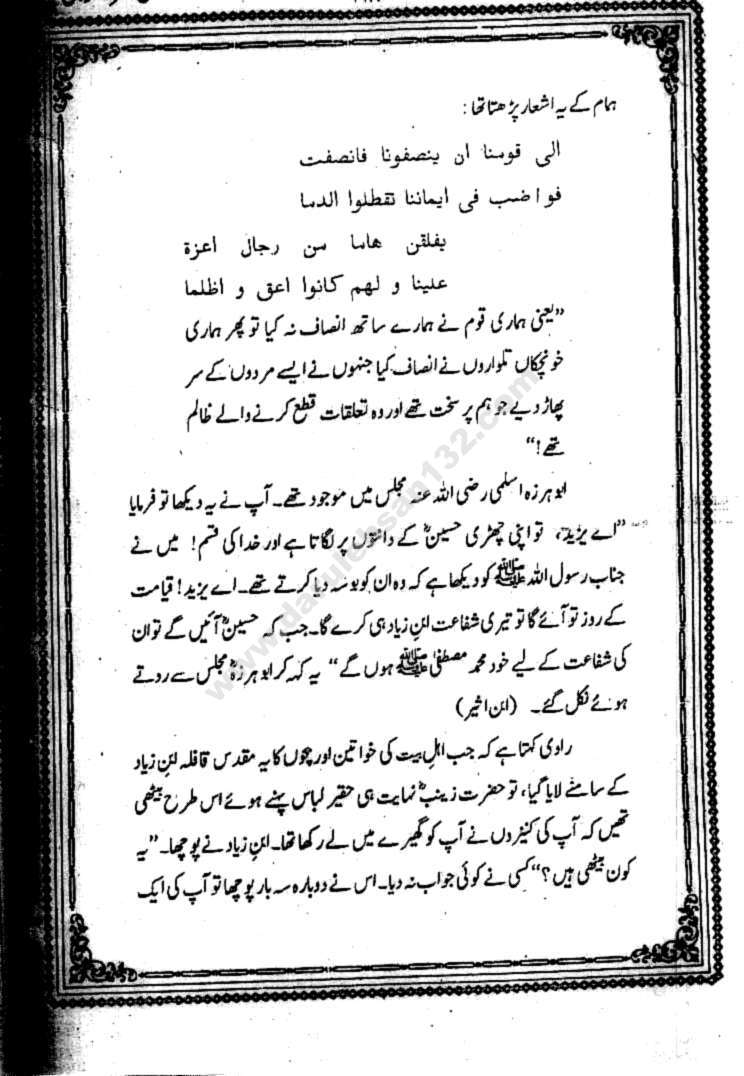 ہمام کے یہ اشعار پڑھتا تھا :
الی قومنا ان ینصفونا فانصفت
فواضب فی ایماننا تقطلوا الدما
یفلقن ھاما من رجال اعزة
علینا و لھم کانوا اعق و اظلما
”یعنی ہماری قوم نے ہمارے ساتھ انصاف نہ کیا تو پھر ہماری
خونچکاں تلواروں نے انصاف کیا جنہوں نے ایسے مردوں کے سر
پھاڑ دیے جو ہم پر سخت تھے اور وہ تعلقات قطع کرنے والے ظالم
تھے!“
ابو ہرزہ اسلمی رضی اللہ عنہ مجلس میں موجود تھے۔ آپ نے یہ دیکھا تو فرمایا
”اے یزید، تو اپنی چھڑی حسینؓ کے دانتوں پر لگاتا ہے اور خدا کی قسم! میں نے
جناب رسول اللہ ﷺ کو دیکھا ہے کہ وہ ان کو بوسہ دیا کرتے تھے۔ اے یزید! قیامت
کے روز تو آئے گا تو تیری شفاعت ابن زیاد ہی کرے گا۔ جب کہ حسینؓ آئیں گے تو ان
کی شفاعت کے لیے خود محمد مصطفیٰ ﷺ ہوں گے“ یہ کہہ کر ابو ہرزہؓ مجلس سے روتے
ہوئے نکل گئے۔ (ابن اثیر)
راوی کہتا ہے کہ جب اہل بیت کی خواتین اور بچوں کا یہ مقدس قافلہ ابن زیاد
کے سامنے لایا گیا، تو حضرت زینبؓ نہایت ہی حقیر لباس پہنے ہوئے اس طرح بیٹھی
تھیں کہ آپ کی کنیزوں نے آپ کو گھیرے میں لے رکھا تھا۔ ابن زیاد نے پوچھا۔ ”یہ
کون بیٹھی ہیں؟“ کسی نے کوئی جواب نہ دیا۔ اس نے دوبارہ سہ بار پوچھا تو آپ کی ایک
www.darulehsan132.com